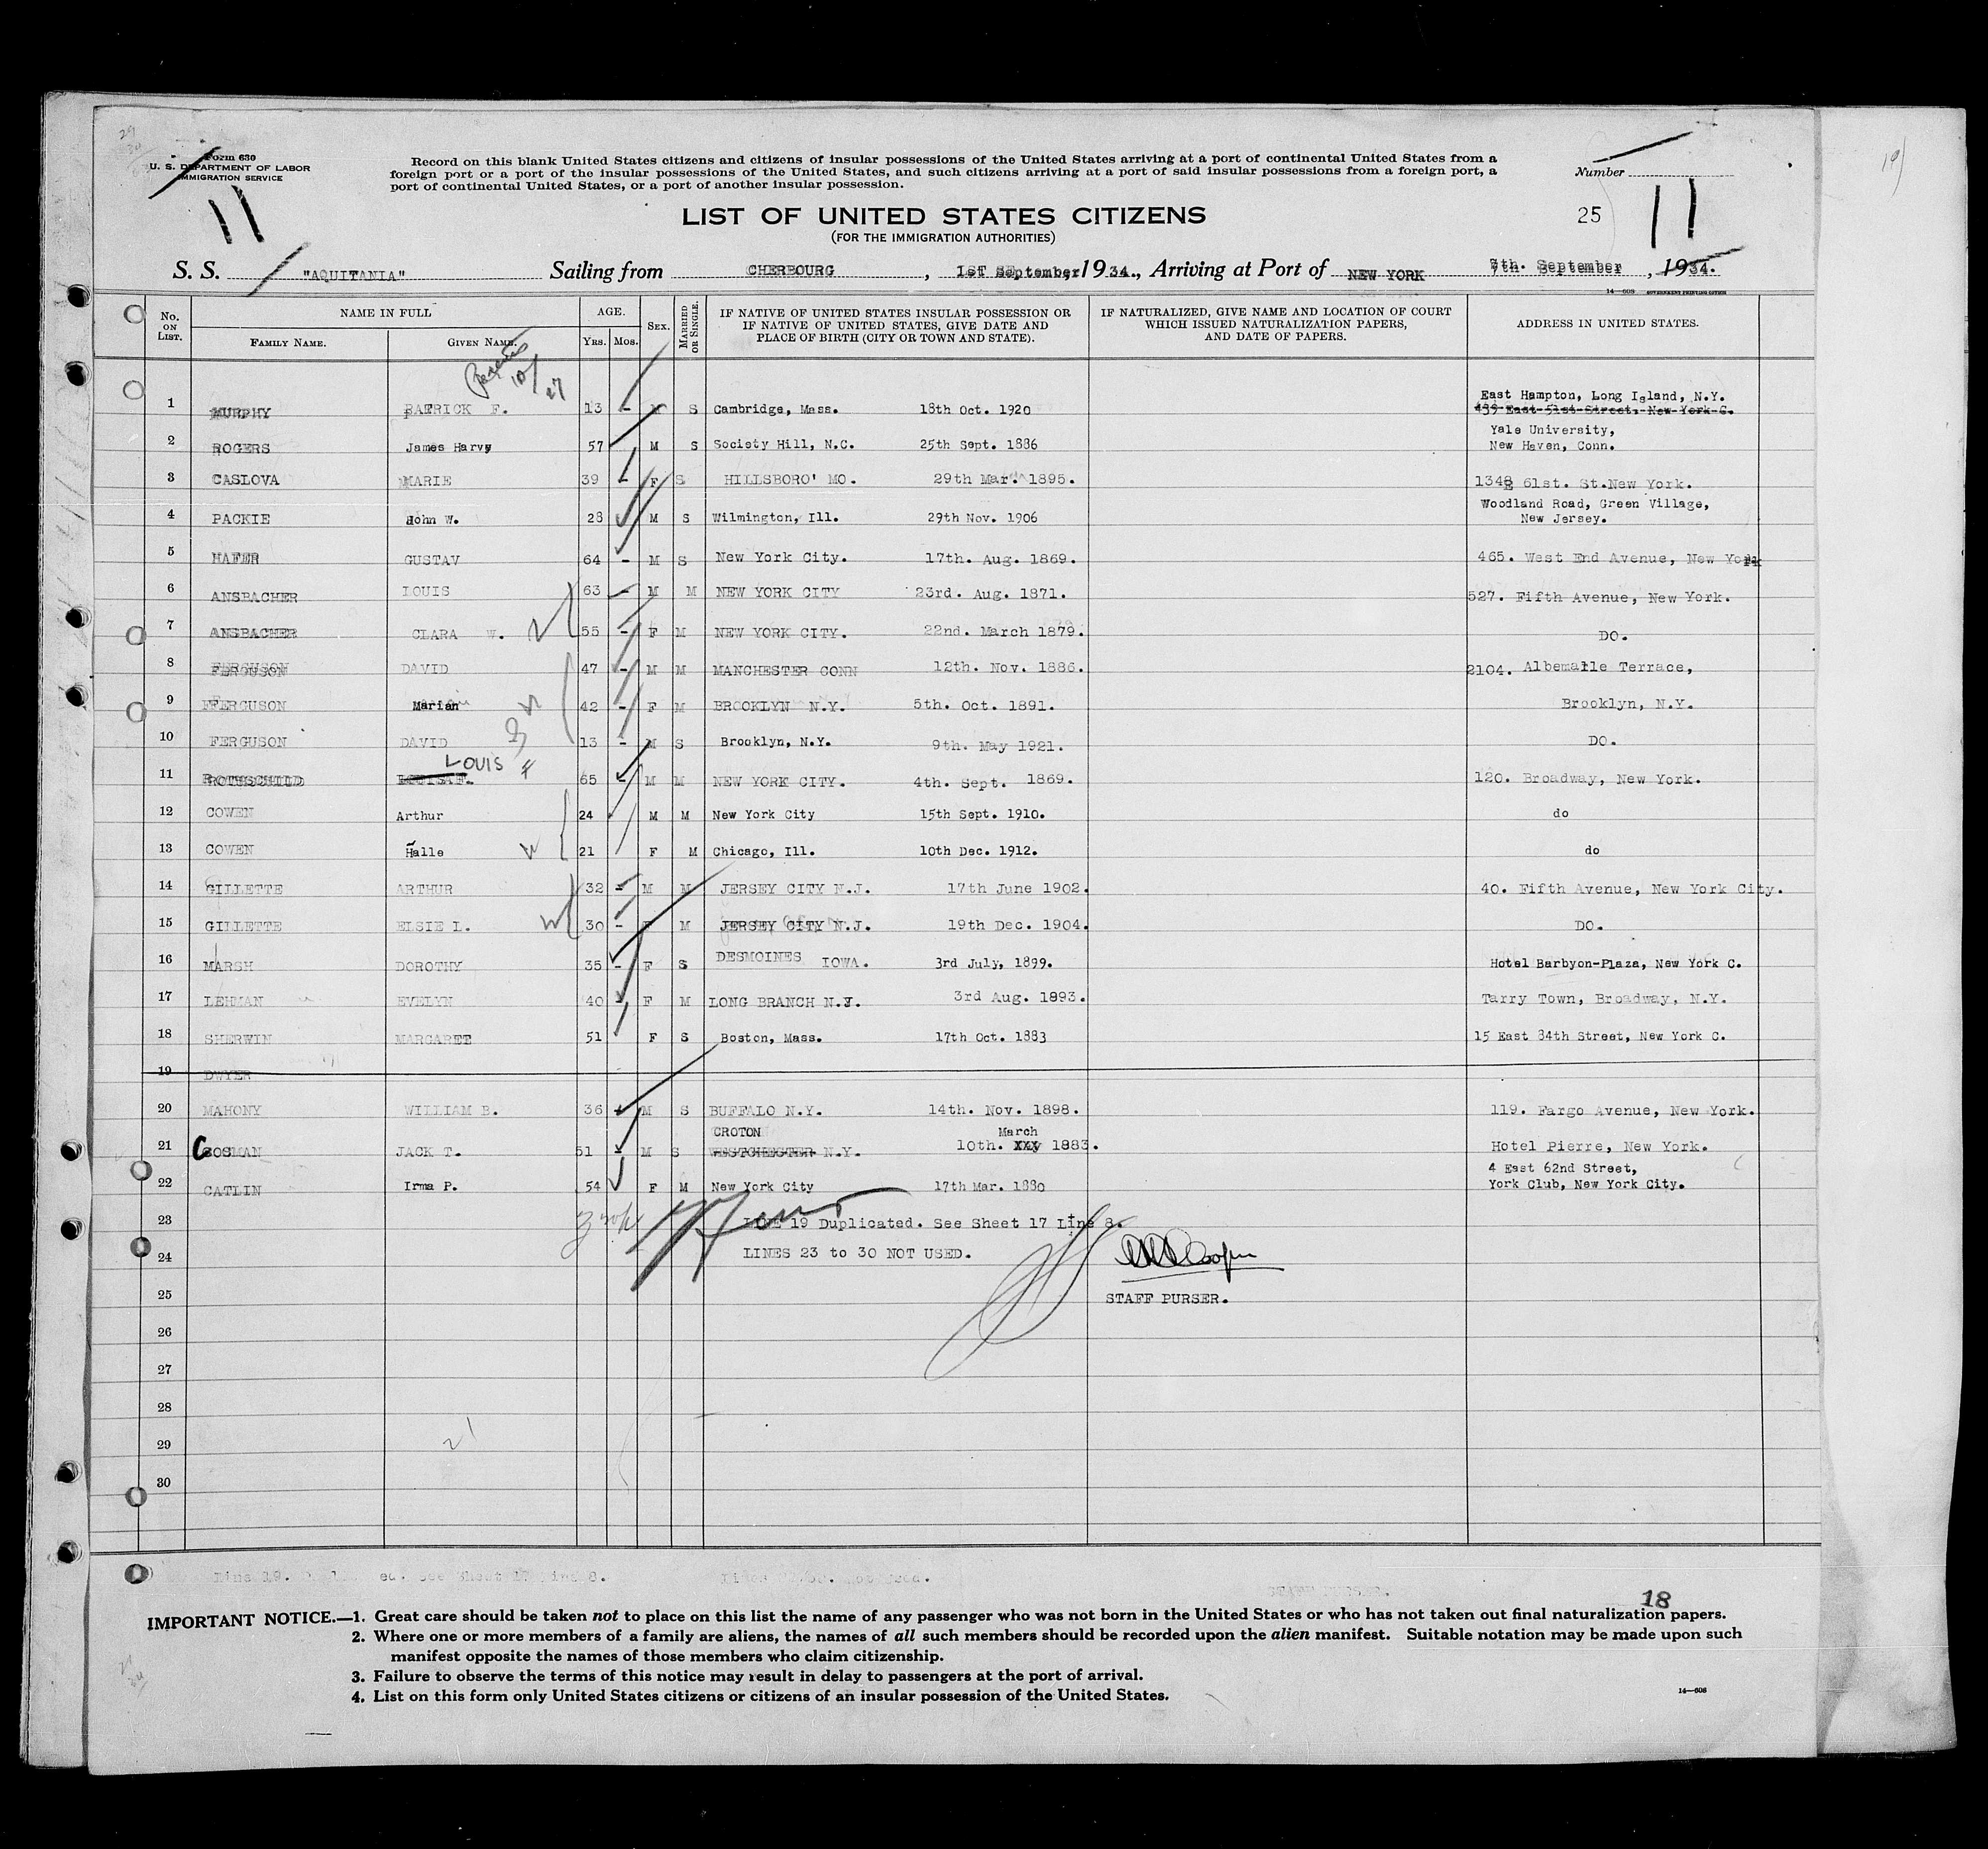 Form 630
U. S. DEPARTMENT OF LABOR
IMMIGRATION SERVICE
Record on this blank United States citizens and citizens of insular possessions of the United States arriving at a port of continental United States from a
foreign port or a port of the insular possessions of the United States, and such citizens arriving at a port of said insular possessions from a foreign port, a
port of continental United States, or a port of another insular possession.
Number
11
LIST OF UNITED STATES CITIZENS
25
11
(FOR THE IMMIGRATION AUTHORITIES)
S. S. "AQUITANIA" Sailing from CHERBOURG, 1ST September, 1934., Arriving at Port of NEW YORK 7th. September, 1934.
14—608 GOVERNMENT PRINTING OFFICE
No. ON LIST. NAME IN FULL FAMILY NAME. GIVEN NAME. AGE. YRS. MOS. SEX. MARRIED OR SINGLE. IF NATIVE OF UNITED STATES INSULAR POSSESSION OR IF NATIVE OF UNITED STATES, GIVE DATE AND PLACE OF BIRTH (CITY OR TOWN AND STATE). IF NATURALIZED, GIVE NAME AND LOCATION OF COURT WHICH ISSUED NATURALIZATION PAPERS, AND DATE OF PAPERS. ADDRESS IN UNITED STATES.
Parents 10/27
East Hampton, Long Island, N.Y.
1 MURPHY PATRICK F. 13 - M S Cambridge, Mass. 18th Oct. 1920 439 East 51st Street, New York C.
Yale University,
2 ROGERS James Harvy 57 M S Society Hill, N.C. 25th Sept. 1886 New Haven, Conn.
3 CASLOVA MARIE 39 - F S HILLSBORO' MO. 29th Mar. 1895. 134 E 61st. St.New York.
Woodland Road, Green Village,
4 PACKIE John W. 28 M S Wilmington, Ill. 29th Nov. 1906 New Jersey.
5 HAFER GUSTAV 64 - M S New York City. 17th. Aug. 1869. 465. West End Avenue, New York
6 ANSBACHER LOUIS 63 - M M NEW YORK CITY 23rd. Aug. 1871. 527. Fifth Avenue, New York.
7 ANSBACHER CLARA W. 55 - F M NEW YORK CITY. 22nd. March 1879. DO.
8 FERGUSON DAVID 47 - M M MANCHESTER CONN 12th. Nov. 1886. 2104. Albemalle Terrace,
9 FERGUSON Marian 42 - F M BROOKLYN N.Y. 5th. Oct. 1891. Brooklyn, N.Y.
10 FERGUSON DAVID 13 - M S Brooklyn, N.Y. 9th. May 1921. DO.
LOUIS F
11 ROTHSCHILD LOUISA F. 65 - M M NEW YORK CITY. 4th. Sept. 1869. 120. Broadway, New York.
12 COWEN Arthur 24 M M New York City 15th Sept. 1910. do
13 COWEN Halle 21 F M Chicago, Ill. 10th Dec. 1912. do
14 GILLETTE ARTHUR 32 - M M JERSEY CITY N.J. 17th June 1902. 40. Fifth Avenue, New York City.
15 GILLETTE ELSIE L. 30 - F M JERSEY CITY N.J. 19th Dec. 1904. DO.
16 MARSH DOROTHY 35 - F S DESMOINES IOWA. 3rd July, 1899. Hotel Barbyon-Plaza, New York C.
17 LEHMAN EVELYN 40 - F M LONG BRANCH N.J. 3rd Aug. 1893. Tarry Town, Broadway, N.Y.
18 SHERWIN MARGARET 51 F S Boston, Mass. 17th Oct. 1883 15 East 84th Street, New York C.
19 DWYER
20 MAHONY WILLIAM B. 36 - M S BUFFALO N.Y. 14th. Nov. 1898. 119. Fargo Avenue, New York.
CROTON March
21 COSMAN JACK T. 51 - M S WESTCHESTER N.Y. 10th. XXX 1883. Hotel Pierre, New York.
4 East 62nd Street,
22 CATLIN Irma P. 54 F M New York City 17th Mar. 1880 York Club, New York City.
23 LINE 19 Duplicated. See Sheet 17 Line 8.
24 LINES 23 to 30 NOT USED.
25 STAFF PURSER.
26
27
28
29 21
30
18
IMPORTANT NOTICE.—1. Great care should be taken not to place on this list the name of any passenger who was not born in the United States or who has not taken out final naturalization papers.
2. Where one or more members of a family are aliens, the names of all such members should be recorded upon the alien manifest. Suitable notation may be made upon such
manifest opposite the names of those members who claim citizenship.
3. Failure to observe the terms of this notice may result in delay to passengers at the port of arrival.
4. List on this form only United States citizens or citizens of an insular possession of the United States.
14—608